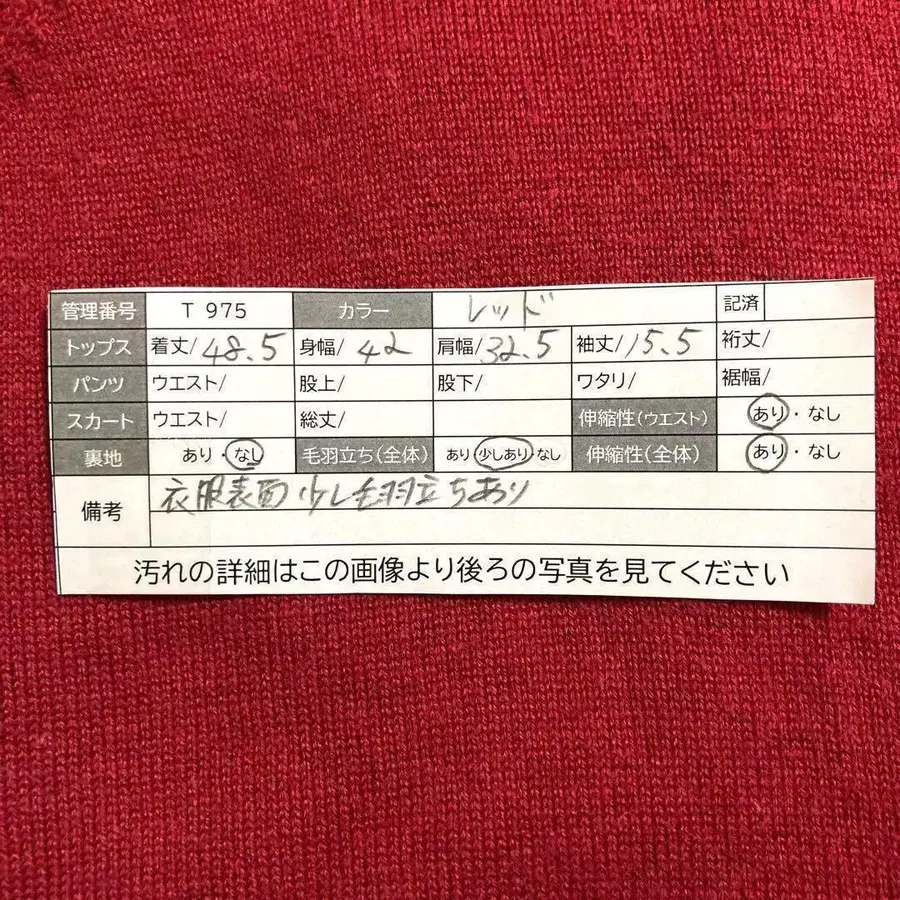 管理番号 T 975 カラー レッド 記済
トップス 着丈/48.5 身幅/42 肩幅/32.5 袖丈/15.5 裄丈/
パンツ ウエスト/ 股上/ 股下/ ワタリ/ 裾幅/
スカート ウエスト/ 総丈/ 伸縮性(ウエスト) あり・なし
裏地 あり・なし 毛羽立ち(全体) あり・少しあり・なし 伸縮性(全体) あり・なし
備考 衣服表面少し毛羽立ちあり
汚れの詳細はこの画像より後ろの写真を見てください